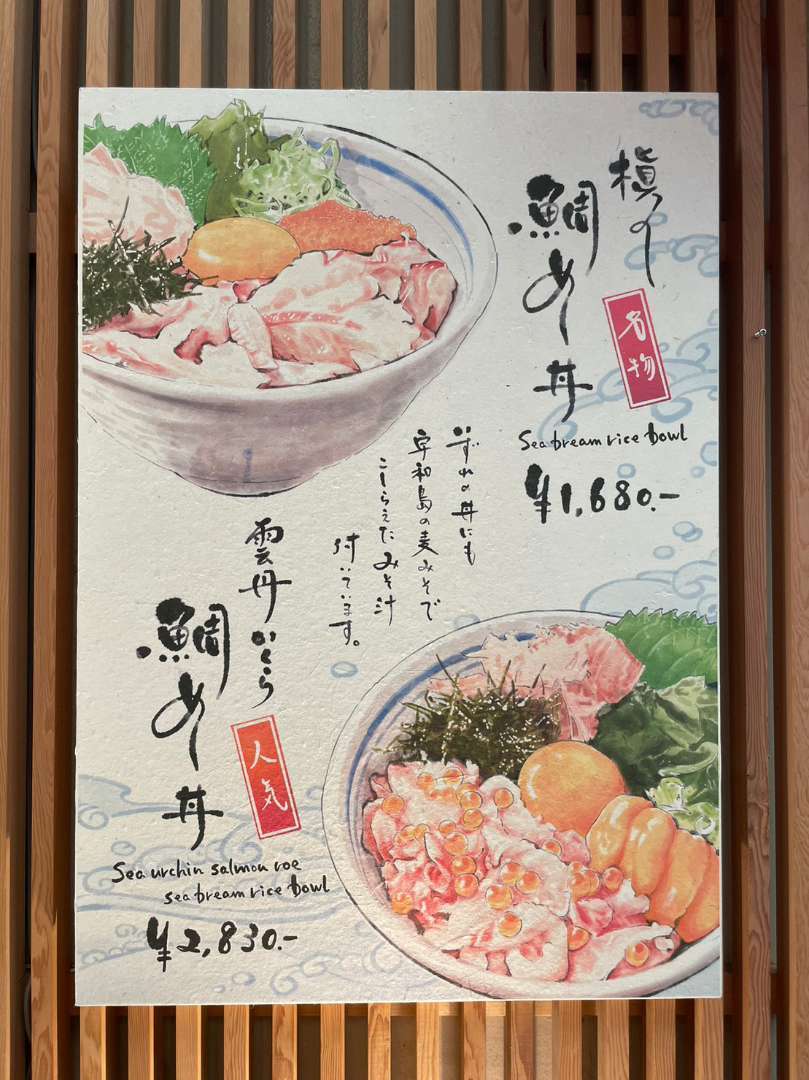 槇の
鯛めし丼
名物
Sea bream rice bowl
¥1,680.-
いずれの丼にも
宇和島の麦みそで
こしらえたみそ汁
付いています。
雲丹いくら
鯛めし丼
人気
Sea urchin salmon roe
sea bream rice bowl
¥2,830.-